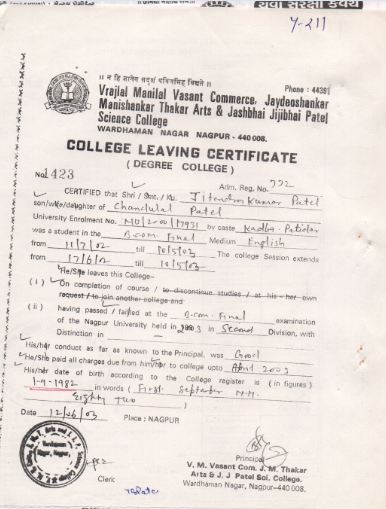 Y-211
॥ न हि ज्ञानेन सदृशं पवित्रमिह विद्यते ॥
Phone : 44391
Vrajlal Manilal Vasant Commerce, Jaydeoshankar
Manishankar Thakar Arts & Jashbhai Jijibhai Patel
Science College
WARDHAMAN NAGAR NAGPUR - 440 008.
COLLEGE LEAVING CERTIFICATE
( DEGREE COLLEGE )
No. 1423
Adm. Reg. No. 772
CERTIFIED that Shri / Smt. / Ku. Jitendra Kumar Patel
son/wife/daughter of Chandulal Patel
University Enrolment No. by caste Kadba Patidar
was a student in the B.com. Final Medium English
from 11/7/02 till 10/5/03 The college Session extends
from 12/6/02 till 10/5/03
He/She leaves this College-
( i ) On completion of course / to discontinue studies / at his - her own
request / to join another college and
( ii ) having passed / failed at the B.com. Final examination
of the Nagpur University held in 2003 in Second Division, with
Distinction in
His/her conduct as far as known to the Principal, was Good
He/She paid all charges due from him/her to college upto April 2003
His/her date of birth according to the College register is ( in figures )
1-9-1982 in words ( First September
Eighty two )
Date 12/06/03 Place : NAGPUR
Clerk
Principal
V. M. Vasant Com. J. M. Thakar
Arts & J. J Patel Sci. College.
Wardhaman Nagar, Nagpur-440 008.